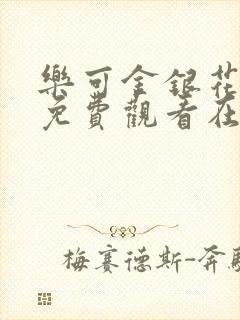 樂可金銀花
免費觀看在
梅賽德斯-奔